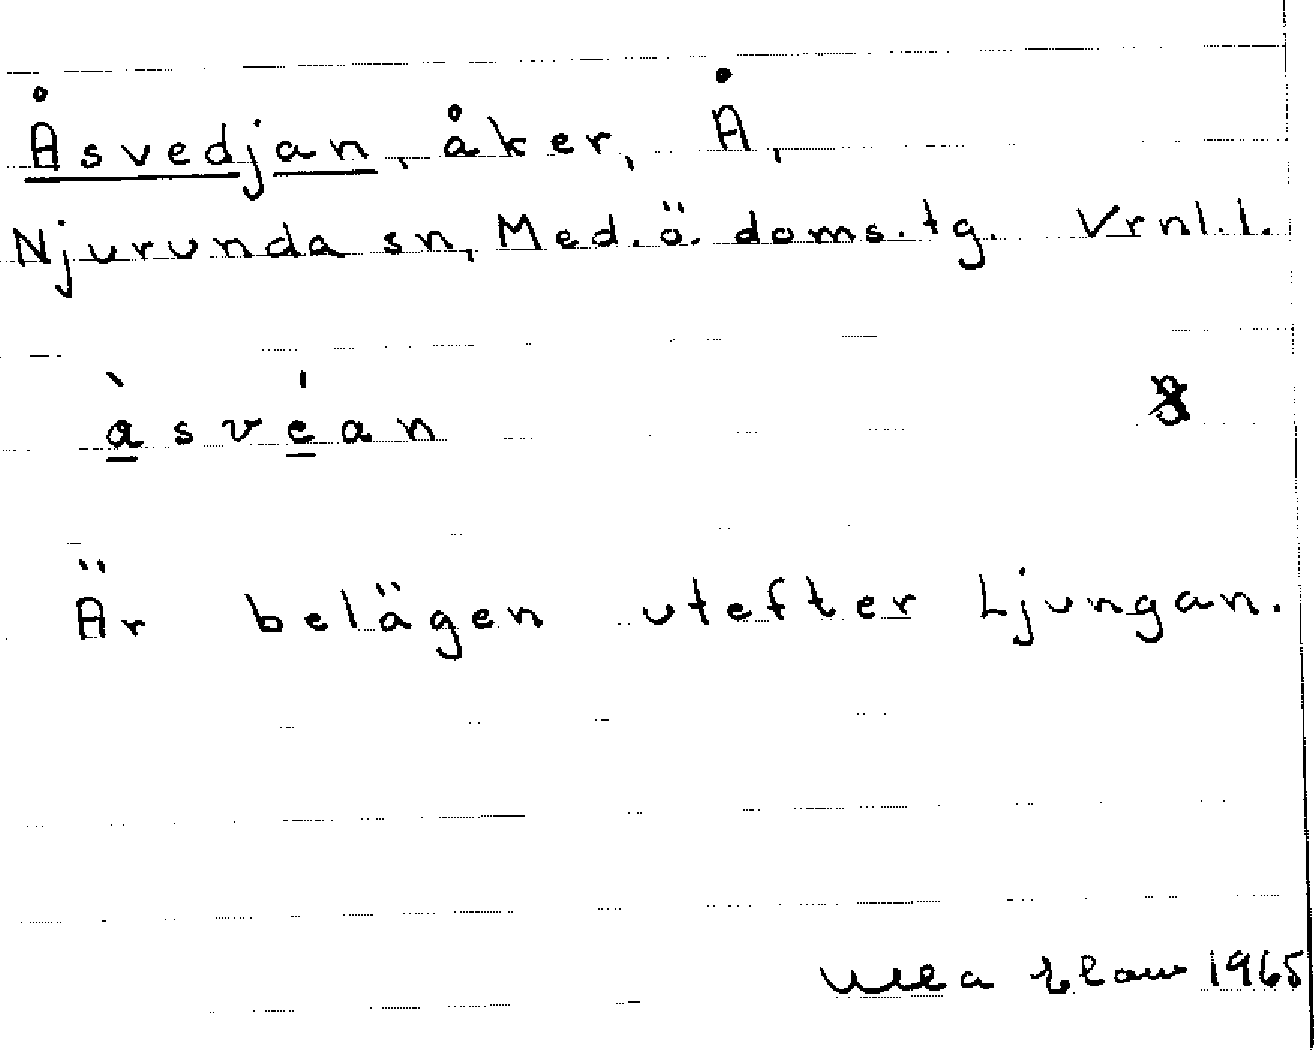 Åsvedjan, åker, Å,
Njurunda sn, Med.ö. doms.tg. Vrnl.l.
àsvéan
Är belägen utefter Ljungan.
Ulla 1965